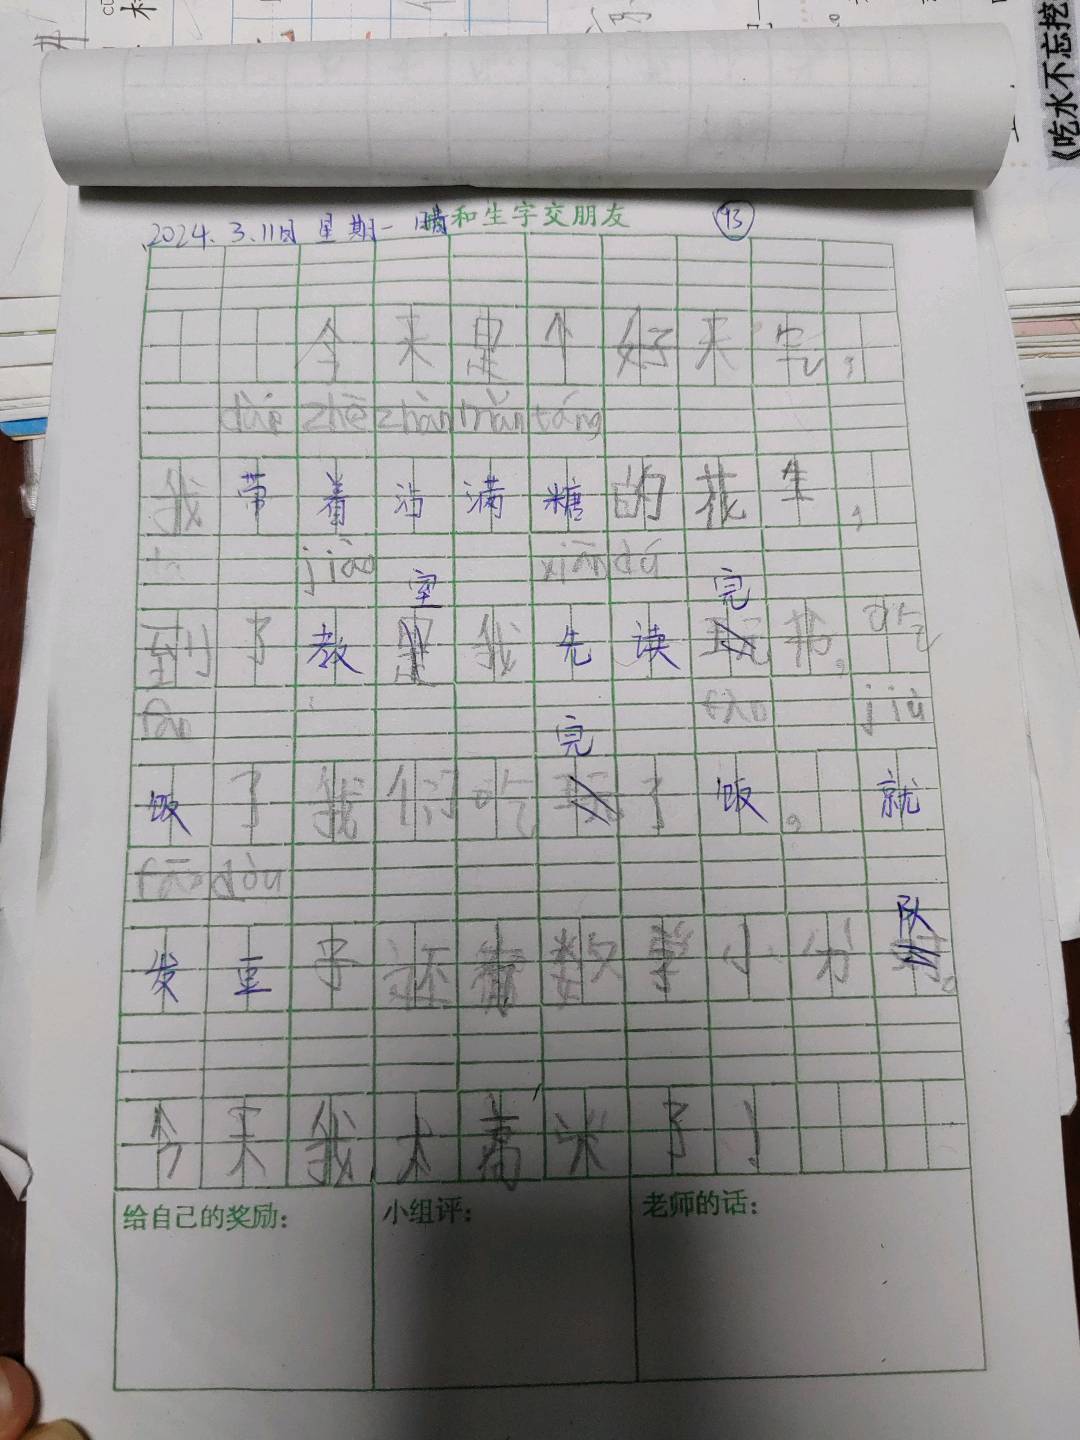 《吃水不忘挖
2024.3.11日 星期一 晴 和生字交朋友 93
今天是个好天气,
dài zhē zhàn mǎn táng
我带着沾满糖的花生,
jiào xiān dú
室 完
到了教里我先读玩书,吃
fàn fàn jiù
完
饭了我们吃玩了饭。就
fā dòu
队
发豆子还有数学小分对。
今天我太高兴了!
给自己的奖励: 小组评: 老师的话: